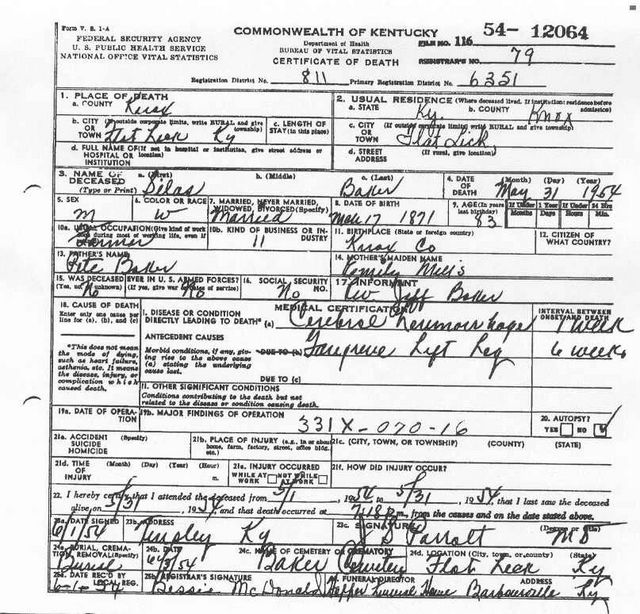 Form V. S. 1-A
FEDERAL SECURITY AGENCY
U. S. PUBLIC HEALTH SERVICE
NATIONAL OFFICE VITAL STATISTICS
COMMONWEALTH OF KENTUCKY
Department of Health
BUREAU OF VITAL STATISTICS
CERTIFICATE OF DEATH
54- 12064
FILE NO. 116
REGISTRAR'S NO. 79
Registration District No. 811 Primary Registration District No. 6351
1. PLACE OF DEATH
a. COUNTY Knox
2. USUAL RESIDENCE (Where deceased lived. If institution: residence before admission)
a. STATE Ky b. COUNTY Knox
b. CITY (If outside corporate limits, write RURAL and give township)
OR TOWN Flat Lick Ky
c. LENGTH OF STAY (in this place)
c. CITY (If outside corporate limits write RURAL and give township)
OR TOWN Flat Lick,
d. FULL NAME OF (If not in hospital or institution, give street address or location)
HOSPITAL OR INSTITUTION
d. STREET ADDRESS (If rural, give location)
3. NAME OF DECEASED (Type or Print)
a. (First) Silas b. (Middle) c. (Last) Baker
4. DATE OF DEATH (Month) (Day) (Year) May 31 1954
5. SEX M
6. COLOR OR RACE W
7. MARRIED, NEVER MARRIED, WIDOWED, DIVORCED (Specify) Married
8. DATE OF BIRTH 17 1871
9. AGE (In years last birthday) 83
If Under 1 Year Months Days
If Under 24 Hrs Hours Min.
10a. USUAL OCCUPATION (Give kind of work done during most of working life, even if retired) Farmer
10b. KIND OF BUSINESS OR INDUSTRY 11
11. BIRTHPLACE (State or foreign country) Knox Co
12. CITIZEN OF WHAT COUNTRY?
13. FATHER'S NAME Baker
14. MOTHER'S MAIDEN NAME Mills
15. WAS DECEASED EVER IN U. S. ARMED FORCES? (Yes, no, or unknown) No (If yes, give war or dates of service) No
16. SOCIAL SECURITY NO. No
17. INFORMANT Jeff Baker
18. CAUSE OF DEATH
Enter only one cause per line for (a), (b), and (c)
*This does not mean the mode of dying, such as heart failure, asthenia, etc. It means the disease, injury, or complication which caused death.
MEDICAL CERTIFICATION
INTERVAL BETWEEN ONSET AND DEATH
I. DISEASE OR CONDITION DIRECTLY LEADING TO DEATH* (a) Cerebral 1 Week
ANTECEDENT CAUSES
Morbid conditions, if any, giving rise to the above cause (a) stating the underlying cause last.
DUE TO (b) Left Leg 6 weeks
DUE TO (c)
II. OTHER SIGNIFICANT CONDITIONS
Conditions contributing to the death but not related to the disease or condition causing death.
19a. DATE OF OPERATION
19b. MAJOR FINDINGS OF OPERATION
331X-070-16
20. AUTOPSY?
YES NO
21a. ACCIDENT SUICIDE HOMICIDE (Specify)
21b. PLACE OF INJURY (e.g., in or about home, farm, factory, street, office bldg. etc.)
21c. (CITY, TOWN, OR TOWNSHIP) (COUNTY) (STATE)
21d. TIME OF INJURY (Month) (Day) (Year) (Hour) m.
21e. INJURY OCCURRED WHILE AT WORK NOT WHILE AT WORK
21f. HOW DID INJURY OCCUR?
22. I hereby certify that I attended the deceased from 5/1, 1954 to 5/31, 1954, that I last saw the deceased
alive on 5/31, 1954 and that death occurred at 7:18 P m., from the causes and on the date stated above.
23a. DATE SIGNED 6/1/54
23b. ADDRESS Tinsley Ky
23c. SIGNATURE Parrott (Degree or title) MD
24a. BURIAL, CREMATION, REMOVAL (Specify) Burial
24b. DATE 6/3/54
24c. NAME OF CEMETERY OR CREMATORY Baker Cemetery
24d. LOCATION (City, town, or county) (State) Flat Lick Ky
25a. DATE REC'D BY LOCAL REG. 6-1-54
25b. REGISTRAR'S SIGNATURE Bessie McDonald
FUNERAL DIRECTOR ADDRESS Funeral Home Barbourville Ky